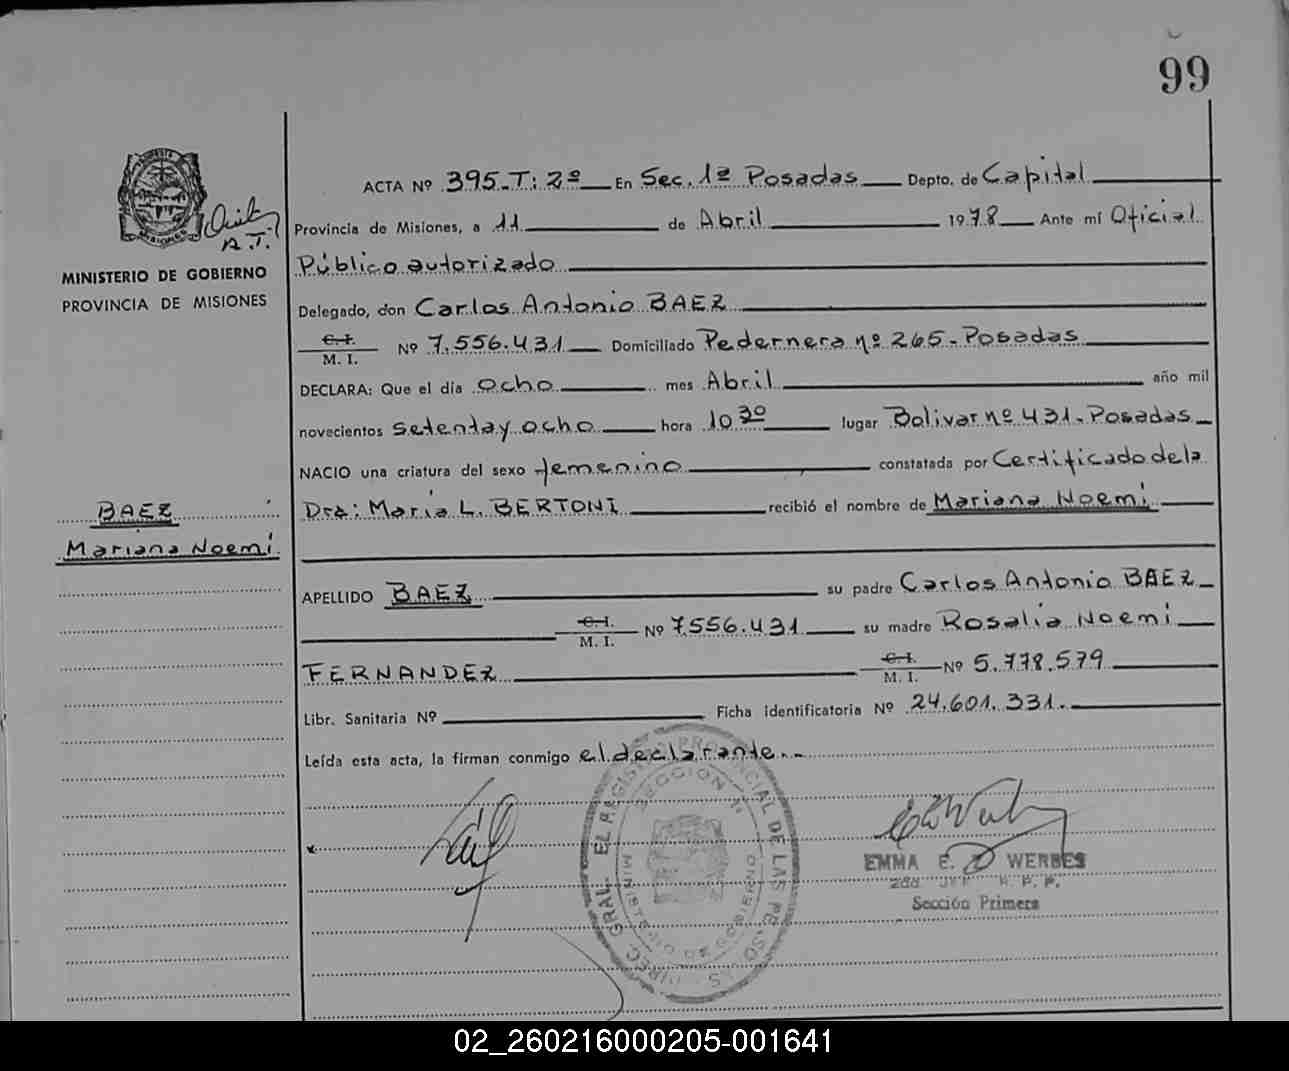 99
ACTA Nº 395-T: 2º En Sec. 1ª Posadas Depto. de Capital
Provincia de Misiones, a 11 de Abril 1978 Ante mí Oficial
Público autorizado
MINISTERIO DE GOBIERNO
PROVINCIA DE MISIONES
Delegado, don Carlos Antonio BAEZ
C.I.
M. I. Nº 7.556.431 Domiciliado Pedernera nº 265-Posadas
DECLARA: Que el día ocho mes Abril año mil
novecientos setenta y ocho hora 10 30 lugar Bolivar nº 431-Posadas
NACIO una criatura del sexo femenino constatada por Certificado de la
BAEZ
Mariana Noemí
Dra: María L. BERTONI recibió el nombre de Mariana Noemí
APELLIDO BAEZ su padre Carlos Antonio BAEZ
C.I.
M. I. Nº 7.556.431 su madre Rosalia Noemi
FERNANDEZ C.I.
M. I. Nº 5.778.579
Libr. Sanitaria Nº Ficha identificatoria Nº 24.601.331.
Leída esta acta, la firman conmigo el declarante.-
EMMA E. WERBES
R. P. P.
Sección Primera
02_260216000205-001641